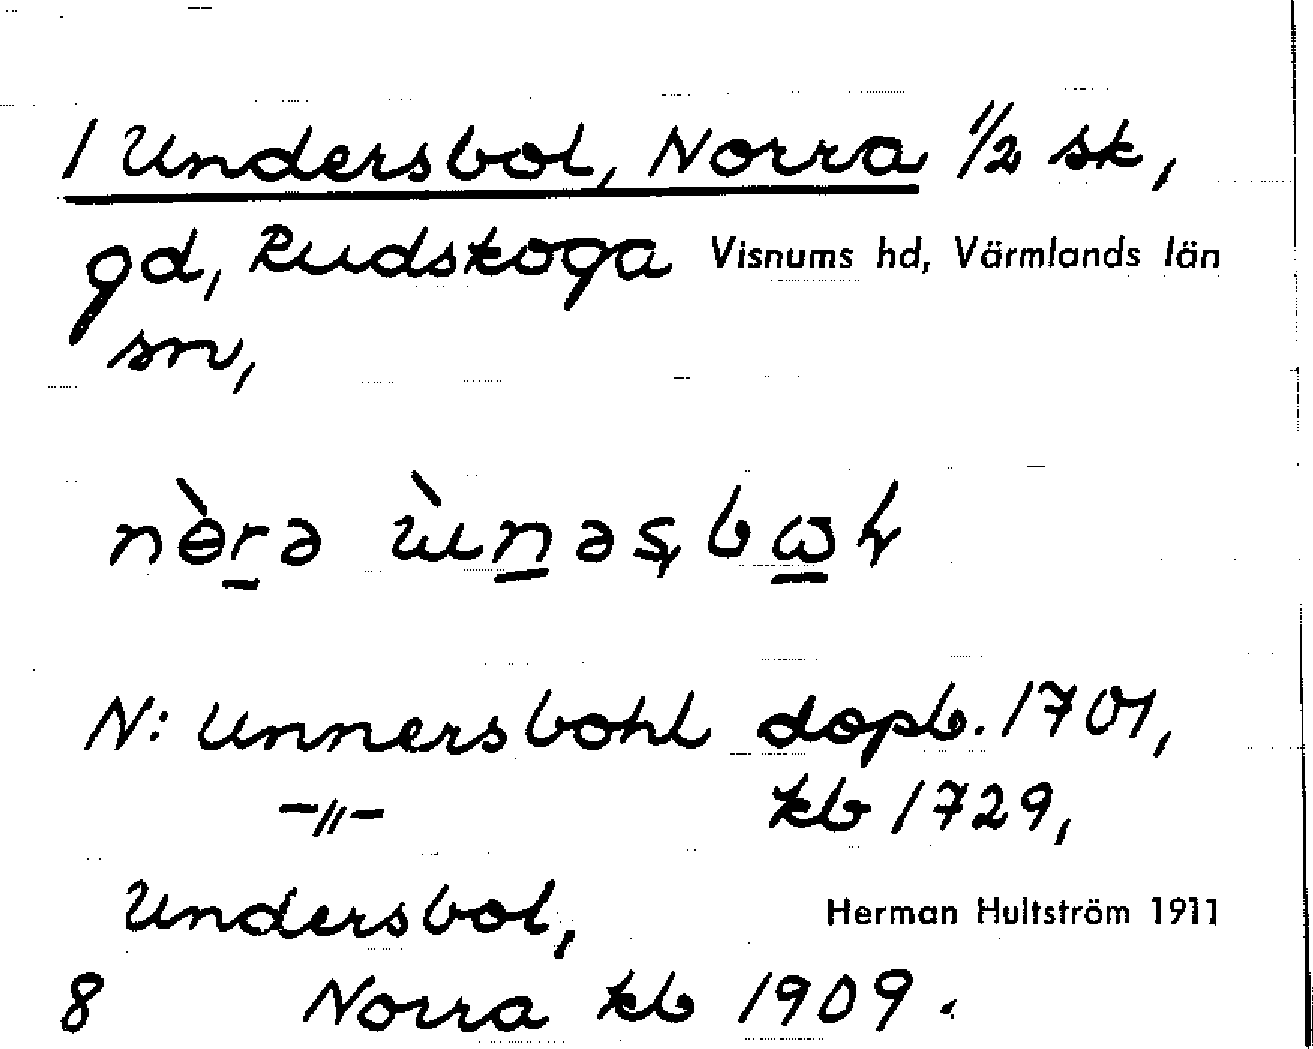 1 Undersbol, Norra 1/2 sk,
gd, Rudskoga Visnums hd, Värmlands län
sn,
N: Unnersbohl dopb. 1701,
-〃- kb 1729,
Undersbol, Herman Hultström 1911
8 Norra kb 1909.